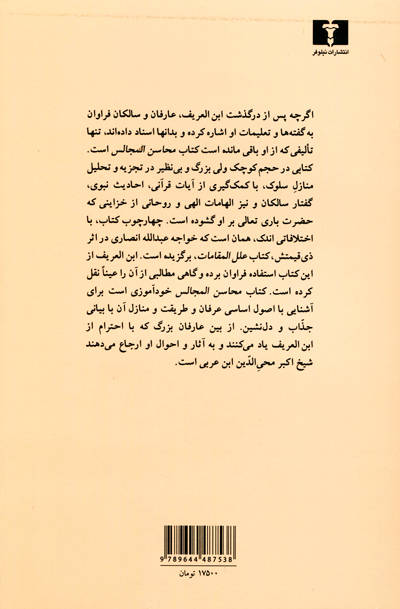 انتشارات نیلوفر
اگرچه پس از درگذشت ابن العریف، عارفان و سالکان فراوان
به گفته‌ها و تعلیمات او اشاره کرده و بدانها اسناد داده‌اند، تنها
تألیفی که از او باقی مانده است کتاب محاسن المجالس است.
کتابی در حجم کوچک ولی بزرگ و بی‌نظیر در تجزیه و تحلیل
منازل سلوک، با کمک‌گیری از آیات قرآنی، احادیث نبوی،
گفتار سالکان و نیز الهامات الهی و روحانی از خزاینی که
حضرت باری تعالی بر او گشوده است. چهارچوب کتاب، با
اختلافاتی اندک، همان است که خواجه عبدالله انصاری در اثر
ذی‌قیمتش، کتاب علل المقامات، برگزیده است. ابن العریف از
این کتاب استفاده فراوان برده و گاهی مطالبی از آن را عیناً نقل
کرده است. کتاب محاسن المجالس خودآموزی است برای
آشنایی با اصول اساسی عرفان و طریقت و منازل آن با بیانی
جذّاب و دل‌نشین. از بین عارفان بزرگ که با احترام از
ابن العریف یاد می‌کنند و به آثار و احوال او ارجاع می‌دهند
شیخ اکبر محی‌الدّین ابن عربی است.
9 789644 487538
۱۷۵۰۰ تومان